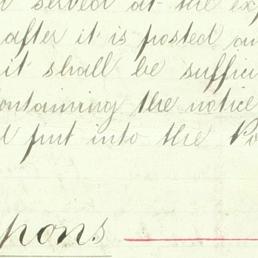 served at the exp
after it is posted an
it shall be suffici
ontaining the notice
d put into the Po
pons